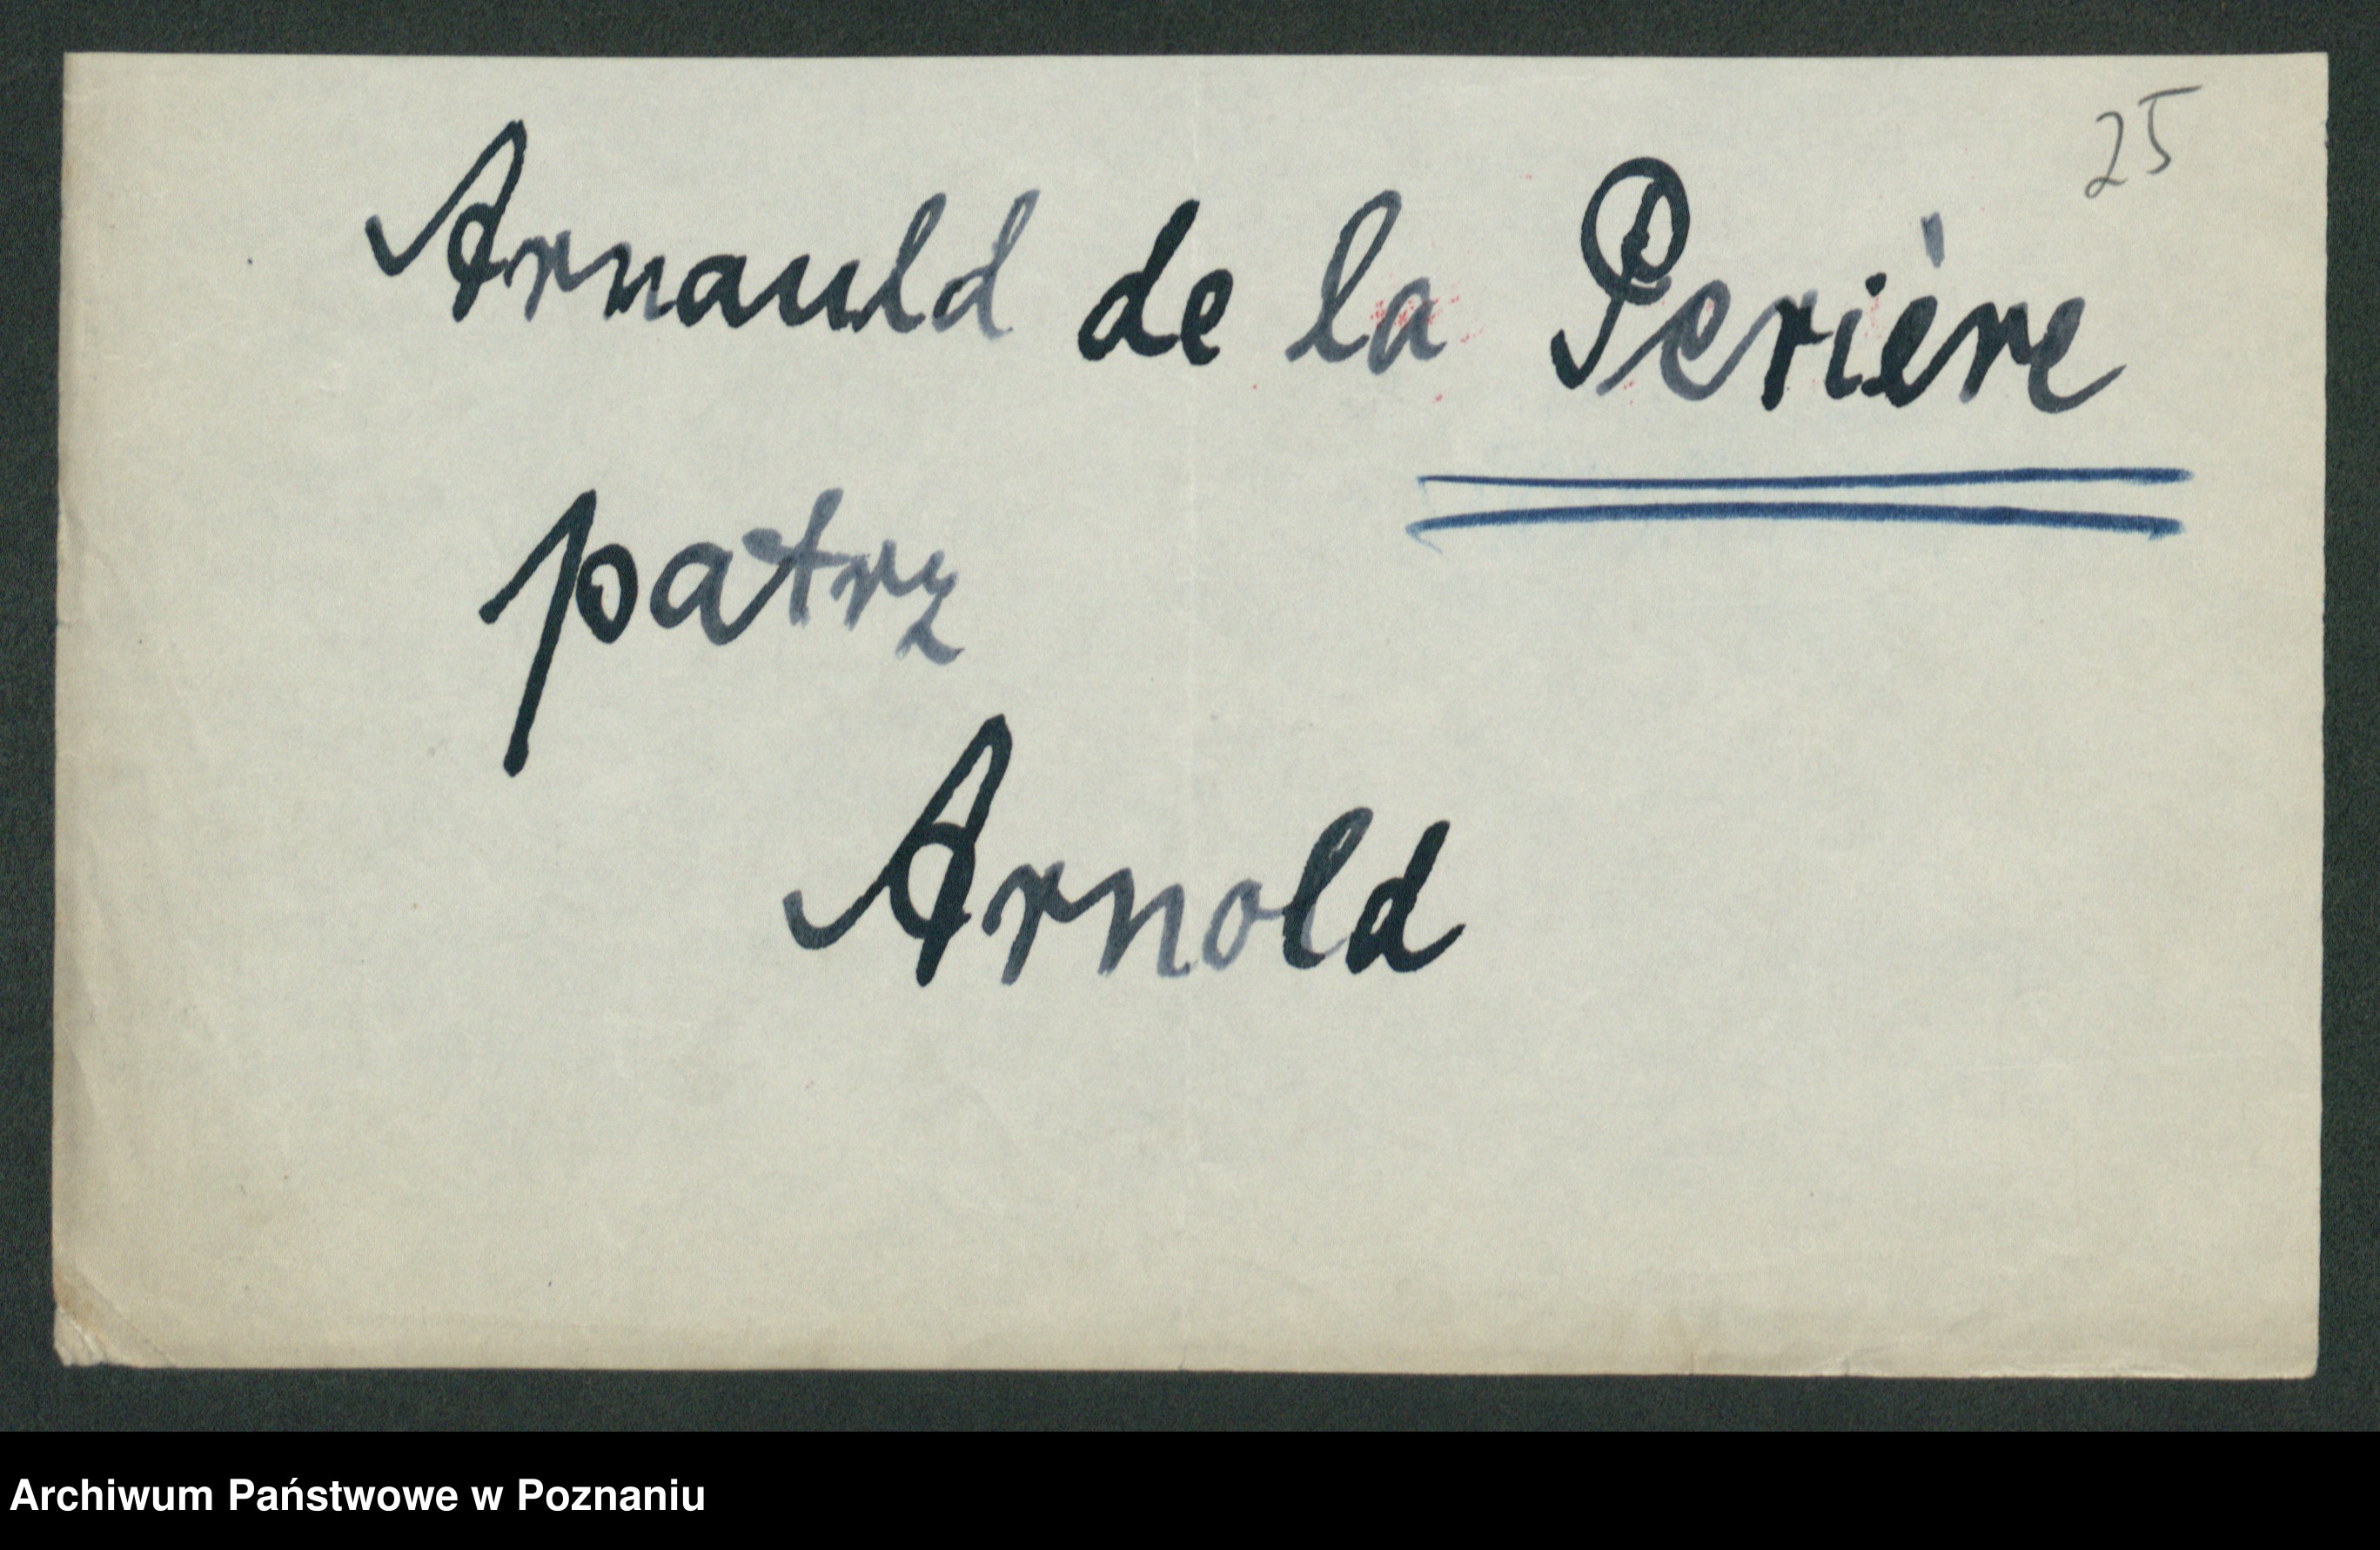 25
Arnauld de la Perière
patrz
Arnold
Archiwum Państwowe w Poznaniu